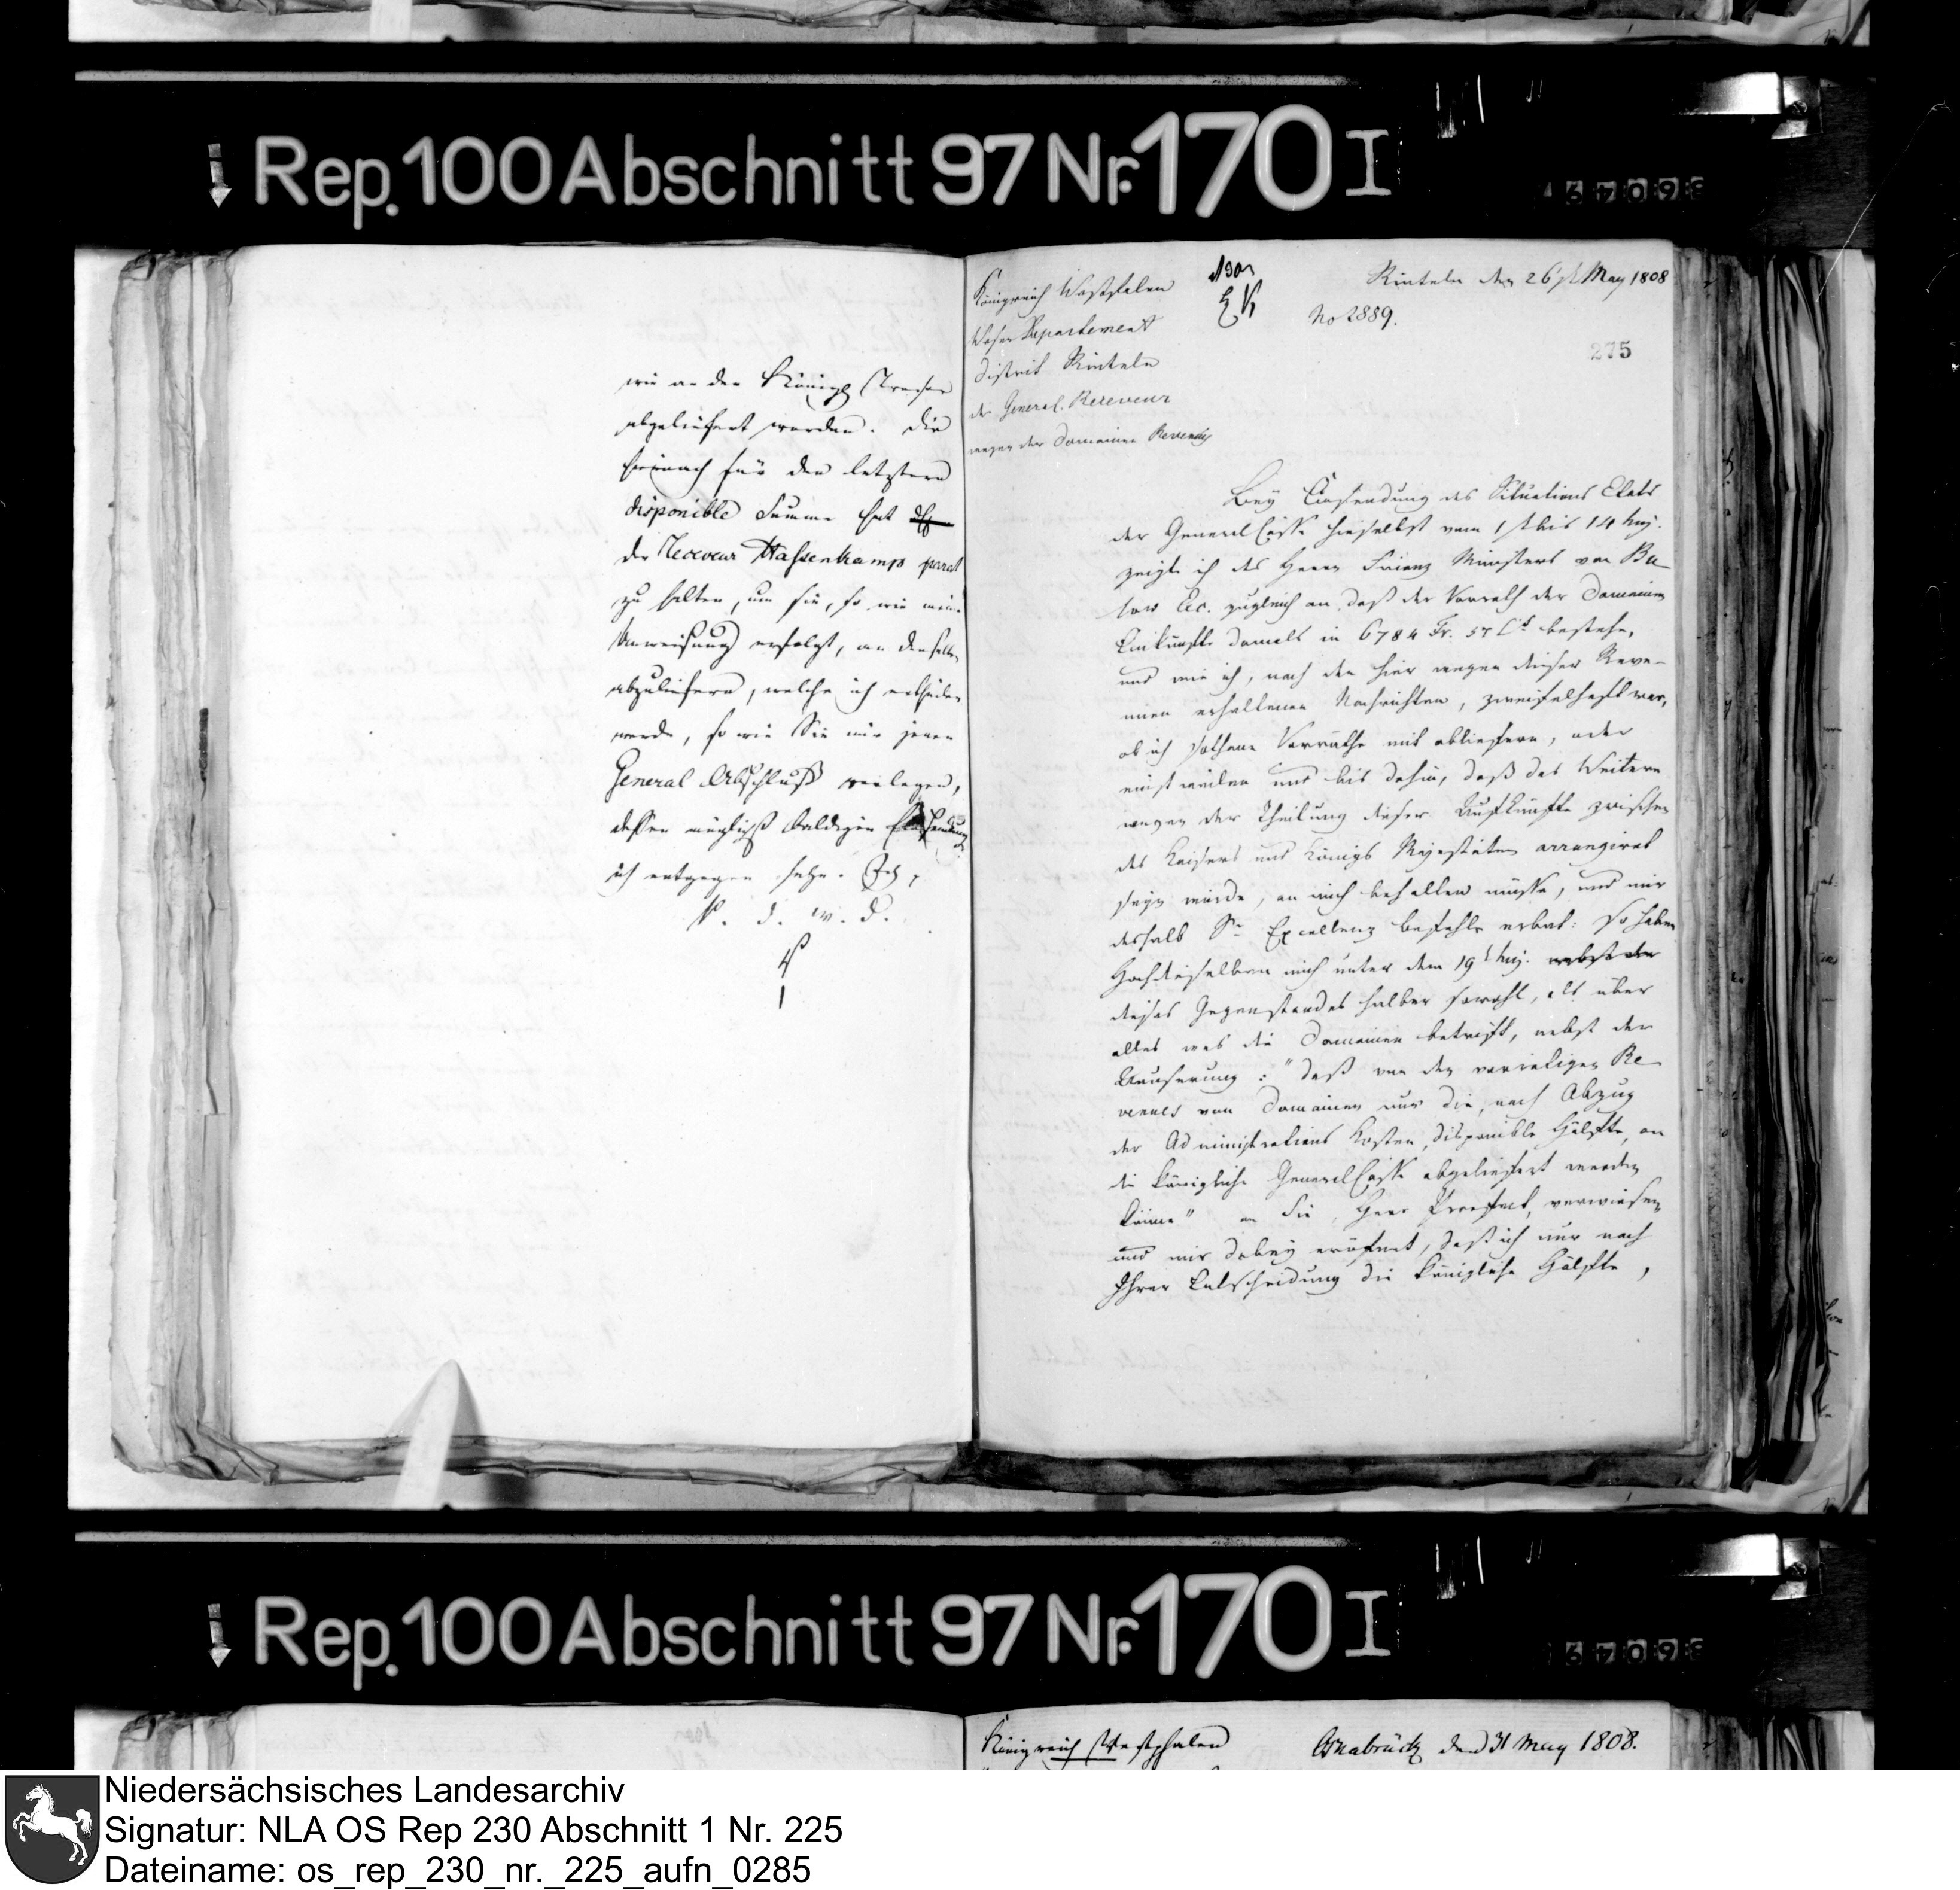 Rep. 100 Abschnitt 97 Nr. 170 I
wie an den Königl. Tresor
abgeliefert werden. Die
hienach für den letztern
disponible Summe hat
der Receveur Hassenkamp parat
zu halten, um sie, so wie meine
Anweisung erfolgt, an denselben
abzuliefern, welche ich ertheilen
werde, so wie Sie mir jenen
General Abschluß vorlegen,
dessen möglichst baldigen Einsendung
ich entgegen sehe. Ich
P. d. W. D.
Königreich Westfalen
Weser Departement
District Rinteln
der General-Receveur
wegen der Domainen Revenües
Rinteln den 26st May 1808
No 2889.
275
Bey Einsendung des Situations Etats
der General Casse hieselbst vom 1st bis 14 huj.
zeigte ich des Herrn Finanz Ministers von Bü-
low Exc. zugleich an, daß der Vorrath der Domainen
Einkünfte damals in 6784 Fr. 57 Ct bestehe,
und wie ich, nach den hier wegen dieser Reve-
nüen erhaltenen Nachrichten, zweifelhaft war,
ob ich sothane Vorräthe mit abliefern, oder
einstweilen und bis dahin, daß das Weitere
wegen der Theilung dieser Aufkünfte zwischen
des Kaisers und Königs Majestäten arrangirt
seyn würde, an mich behalten müsse, und mir
deshalb Sr Excellenz Befehle erbat: so haben
Hochdieselben mich unter dem 19t huj. nebst der
dieses Gegenstandes halber sowohl, als über
alles was die Domainen betrifft, nebst der
Aeuserung: "daß von den vorräthigen Re-
venues von Domainen nur die, nach Abzug
der Administrations Kosten, disponible Hälfte, an
die Königliche General Casse abgeliefert werden
könne" an Sie, Herr Praefect, verwiesen
und mir dabey eröfnet, daß ich nur nach
Ihrer Entscheidung die Königliche Hälfte,
Rep. 100 Abschnitt 97 Nr. 170 I
Königreich Westphalen
Osnabrück den 31 May 1808.
Niedersächsisches Landesarchiv
Signatur: NLA OS Rep 230 Abschnitt 1 Nr. 225
Dateiname: os_rep_230_nr._225_aufn_0285